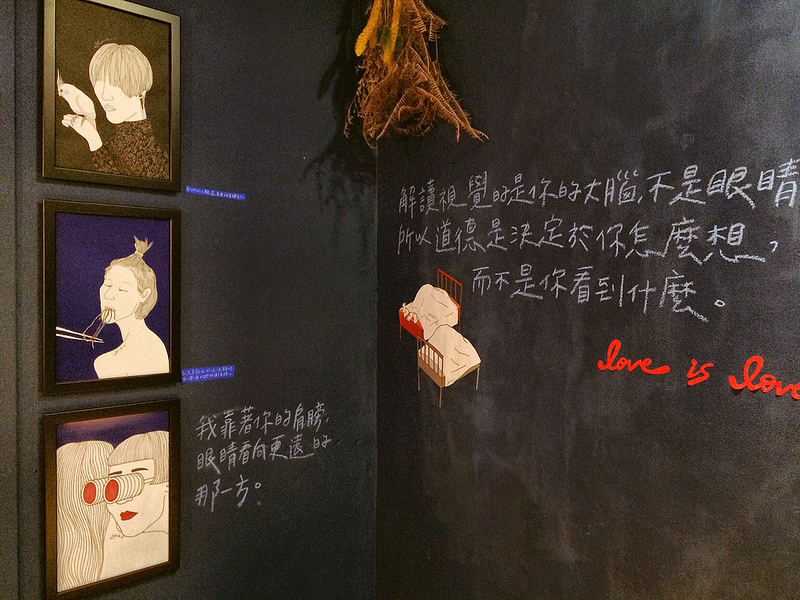 解讀視覺的是你的大腦,不是眼睛
所以道德是決定於你怎麼想,
而不是你看到什麼。
love is love
我靠著你的肩膀,
眼睛看向更遠的
那一方。